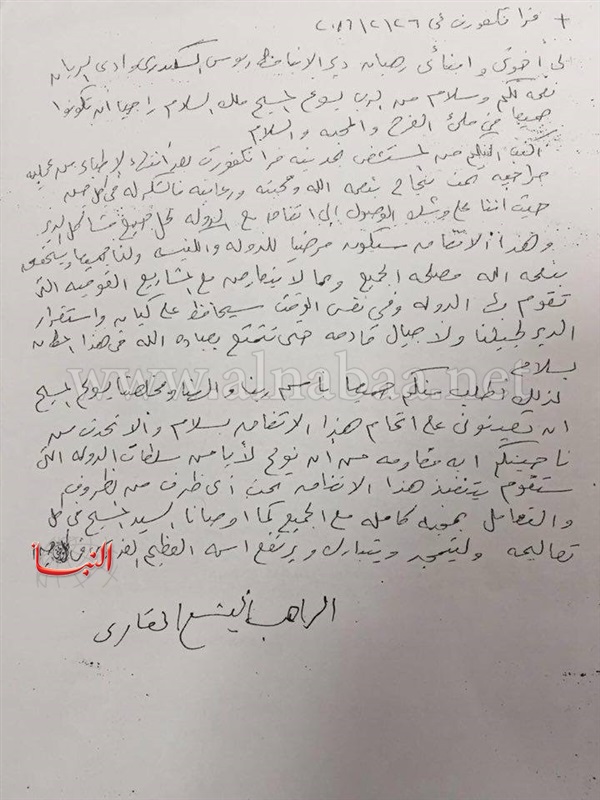 + فرانكفورت في ٢٦/٢/٢٠١٦
إلى أخوتي وابنائي رهبان دير الانبا مكاريوس السكندري وادى الريان
نعمه لكم وسلام من الرب يسوع المسيح ملك السلام راجيا ان تكونوا
جميعا في ملئ الفرح والمحبه والسلام
اكتب اليكم من المستشفى بمدينه فرانكفورت بعد انتهاء الاطباء من عمليه
جراحيه تمت بنجاح بنعمه الله ومحبته ورعايته فالشكر له في كل حين
حيث اننا على وشك الوصول إلى اتفاق مع الدوله لحل جميع مشاكل الدير
وهذا الاتفاق سيكون مرضيا للدوله والكنيسه ولنا جميعا ويحقق
بنعمه الله مصلحه الجميع وبما لا يتعارض مع المشاريع القوميه التى
تقوم بها الدوله وفى نفس الوقت سيحافظ على كيان واستقرار
الدير لجيلنا ولاجيال قادمه حتى نتمتع بعباده الله فى هذا المكان
بسلام
www.alnabaa.net
لذلك اطلب منكم جميعا باسم ربنا والهنا ومخلصنا يسوع المسيح
ان تساعدونى على اتمام هذا الاتفاق بسلام والا تحدث من
ناحيتكم ايه مقاومه من اى نوع لأيا من سلطات الدوله التى
ستقوم بتنفيذ هذا الاتفاق تحت أى ظرف من الظروف
والتعامل بمحبه كامله مع الجميع كما اوصانا السيد المسيح في كل
تعاليمه وليتمجد ويتبارك ويرتفع اسمه العظيم القدوس
النبأ
الراهب اليشع المقارى